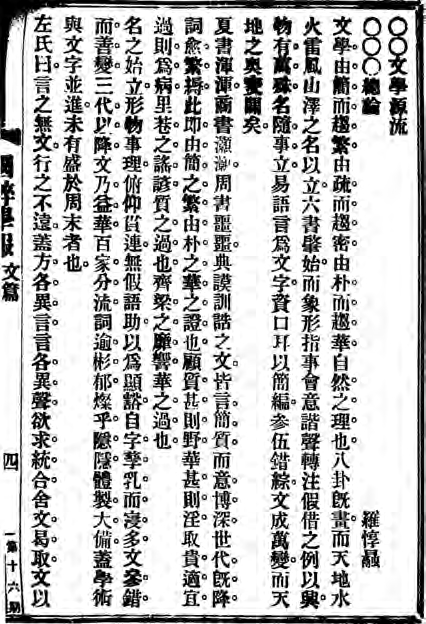 ○○文學源流
○○○總論
羅惇曧
文學由簡而趨繁由疏而趨密由朴而趨華自然之理也。八卦旣畫。而天地水
火雷風山澤之名以立。六書肇始。而象形指事會意諧聲轉注假借之例以興。
物有萬殊。名隨事立。易語言爲文字。資口耳以簡編。參伍錯綜。文成萬變。而天
地之奧變闢矣。
夏書渾渾。商書灝灝。周書噩噩。典謨訓誥之文。皆言簡質而意博深。世代旣降。
詞愈繁縟。此卽由簡之繁由朴之華之證也。顧質甚則野。華甚則淫。取貴適宜。
過則爲病。里巷之謠諺。質之過也。齊梁之靡響。華之過也。
名之始立。形物事理。俯仰貫連。無假語助。以爲顯豁。自字孳乳而浸多。文參錯
而善變。三代以降。文乃益華。百家分流。詞逾彬郁。燦乎隱隱。體製大備。蓋學術
與文字並進。未有盛於周末者也。
左氏曰。言之無文。行之不遠。蓋方各異言。言各異聲。欲求統合。舍文曷取。文以
國粹學報
文篇
四
第十六期